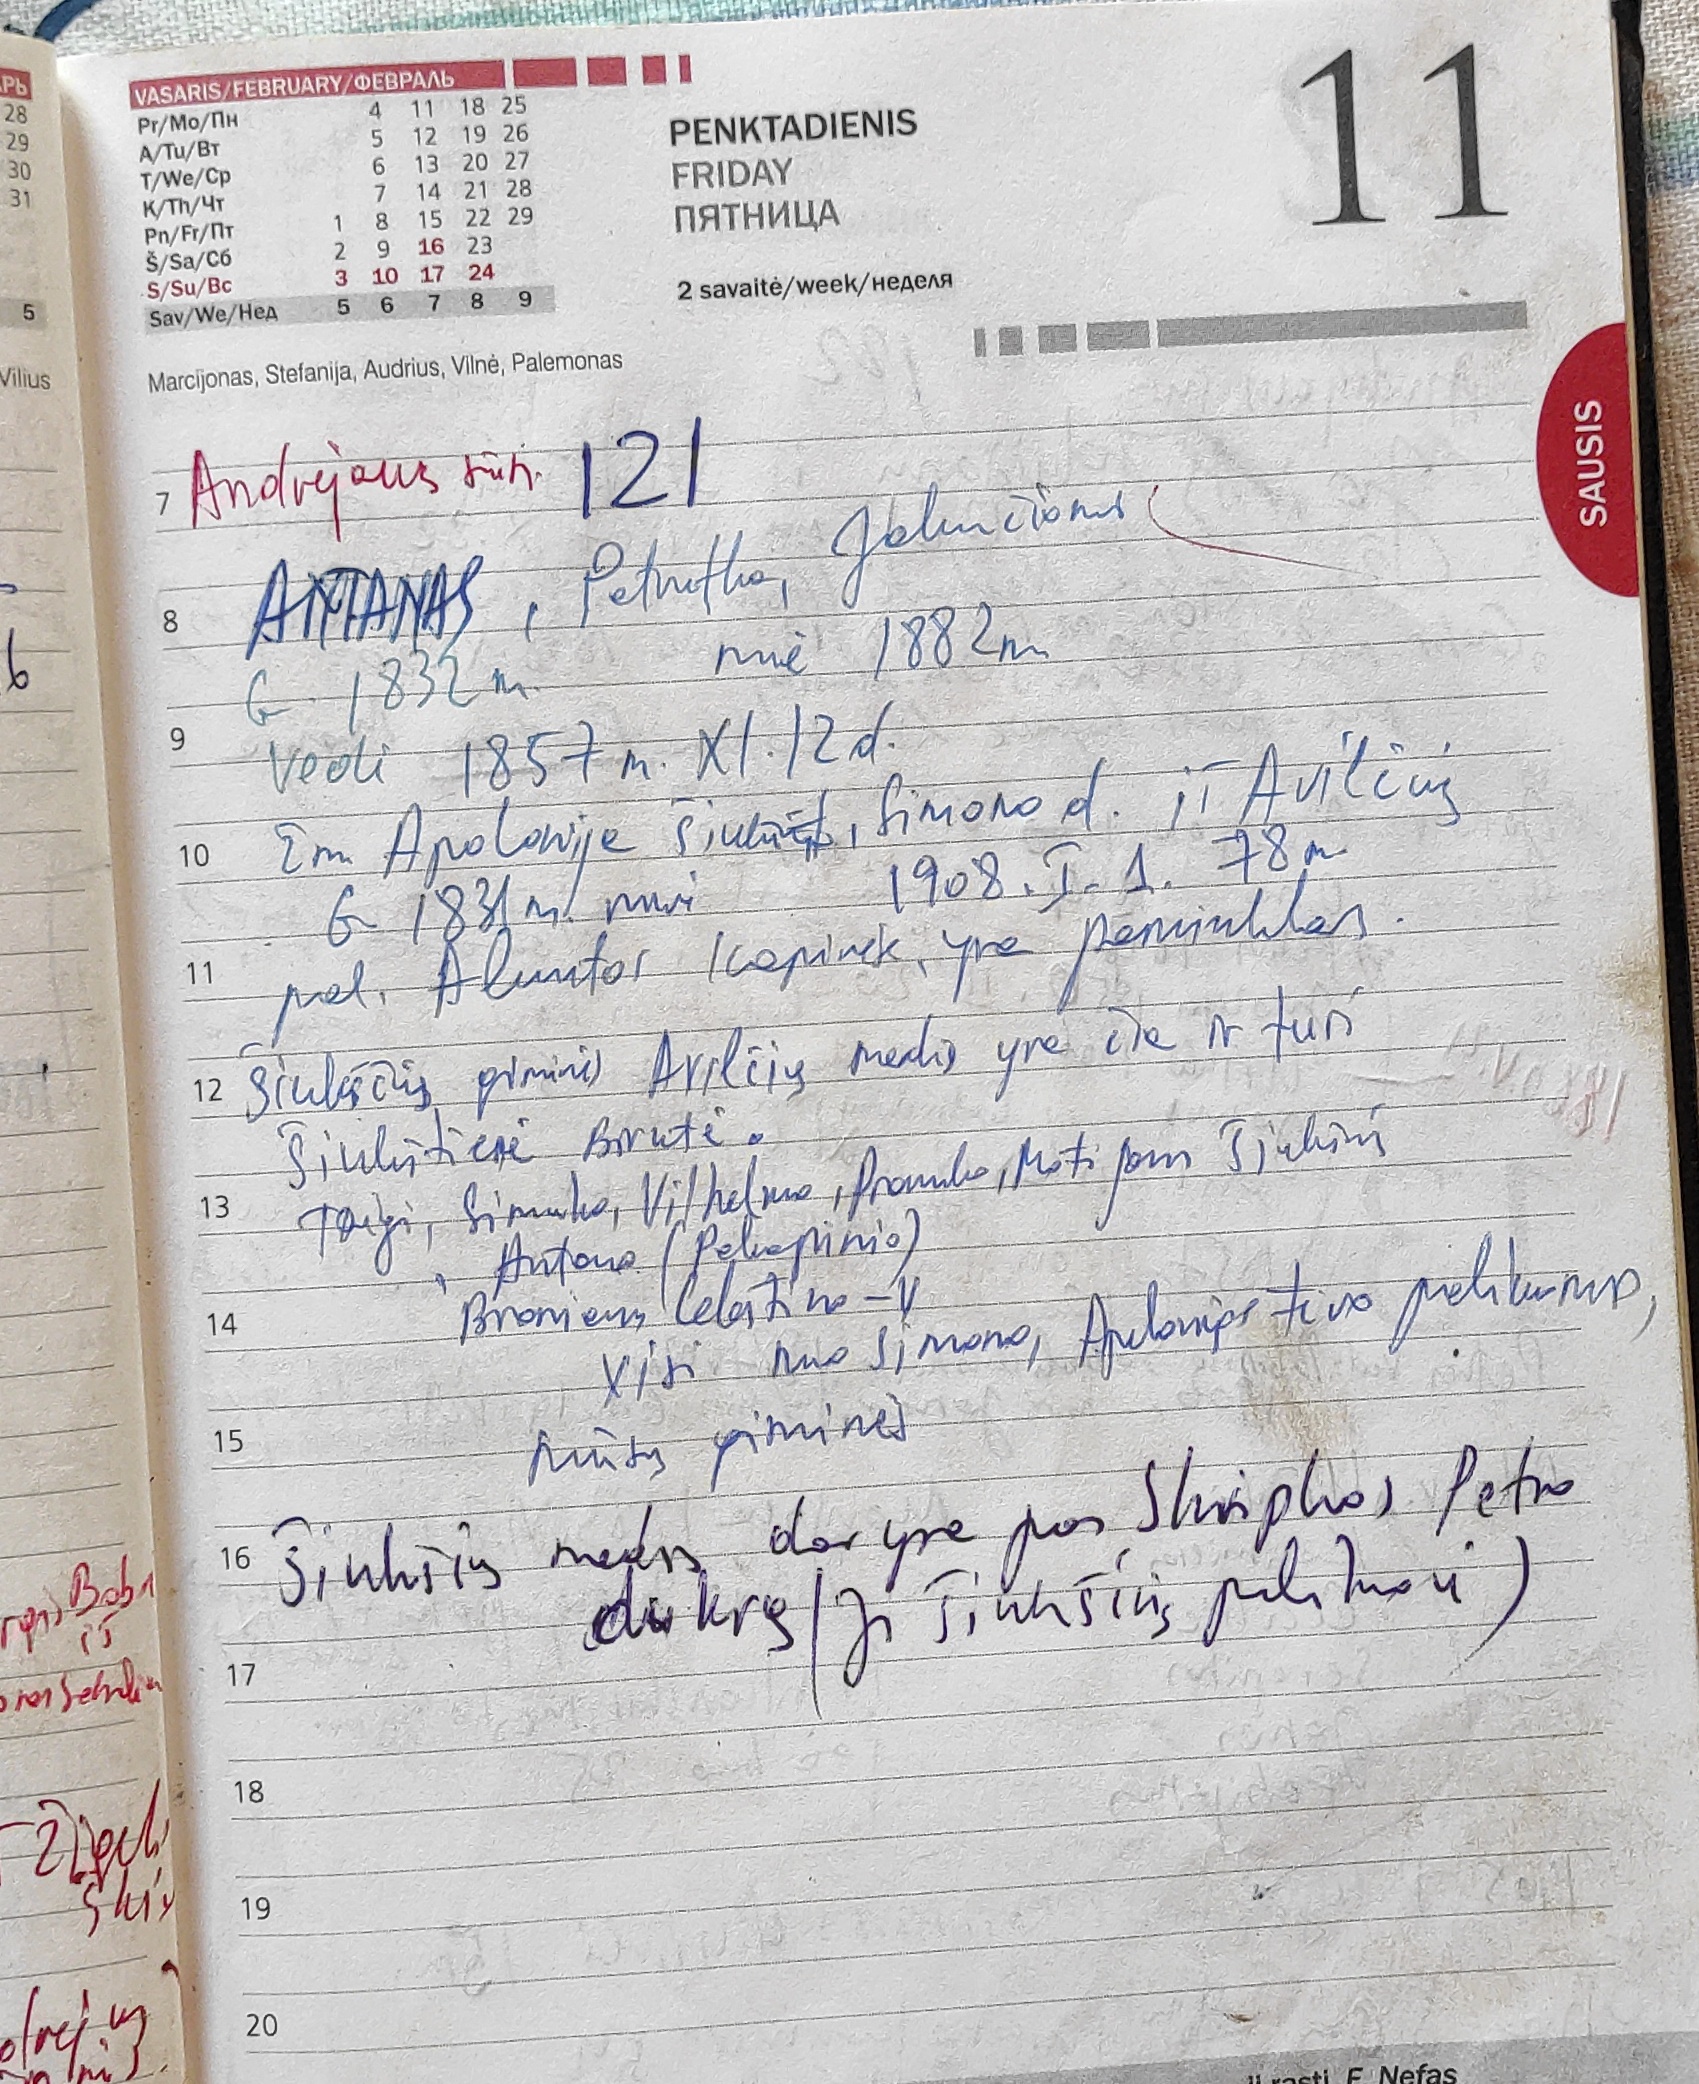 VASARIS/FEBRUARY/ФЕВРАЛЬ
Pr/Mo/Пн 4 11 18 25
A/Tu/Вт 5 12 19 26
T/We/Ср 6 13 20 27
K/Th/Чт 7 14 21 28
Pn/Fr/Пт 1 8 15 22 29
Š/Sa/Сб 2 9 16 23
S/Su/Вс 3 10 17 24
Sav/We/Нед 5 6 7 8 9
PENKTADIENIS
FRIDAY
ПЯТНИЦА
2 savaitė/week/неделя
11
Marcijonas, Stefanija, Audrius, Vilnė, Palemonas
SAUSIS
7 Andrejaus sūn. 121
8 ANTANAS, Petrutka,
G. 1832 m. mirė 1882 m
9 Vedi 1857 m. XI. 12 d.
10 Žm. Apolonija Simono d. iš Avilčių
G 1831 m. mirė 1908. I. 1. 78 m
11 pal. Aluntos kapinėse, yra paminklas.
12 Šiukščių giminės Avilčių medis yra čia ir turi
Šiukštienė Birutė.
13 Taigi, Simuko, Vilhelmo, Pranuko, Motiejaus
, Antano (Pakapinio)
14 Broniaus Celestino - V
Visi nuo Simono, Apolonijos tėvo palikuonys,
15 mūsų giminės
16 Šiukščių medis dar yra pas Skripkos Petro
dukrą (Ji Šiukščių palikuonė)
17
18
19
20
rasti. F. Nefas
28
29
30
31
5
Vilius
6